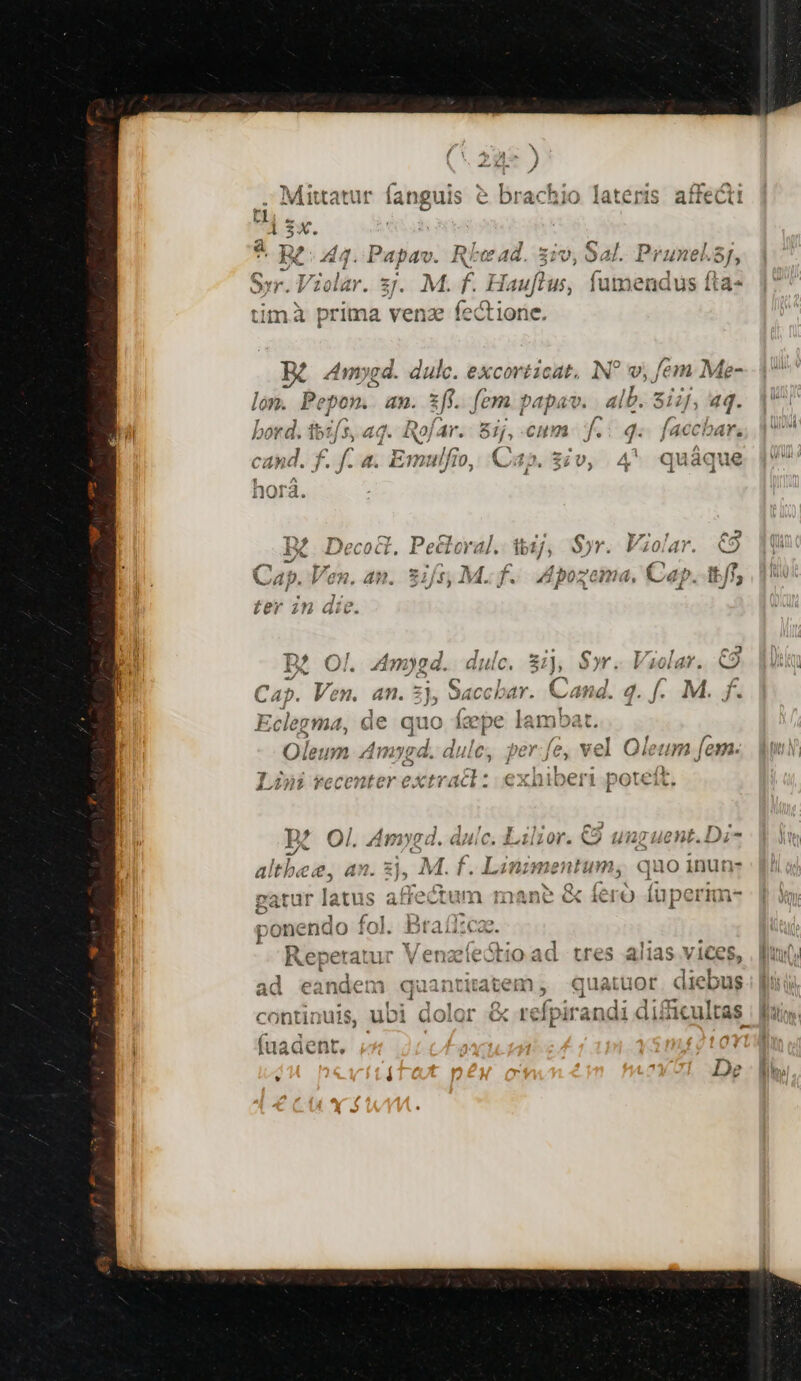 ( 24 )
Mittatur ſanguis è brachio lateris affecti
ad ℥x.
℞ Aq. Papav. Rhœad. ℥iv, Sal. Prunel. ʒj,
Syr. Violar. ℥j. M. f. Hauſtus, ſumendus ſta-
timà prima venæ ſectione.
℞ Amygd. dulc. excorticat. N° v, ſem Me-
lon. Pepon. an. ℥ſſ. ſem papav. alb. ʒiij, aq.
hord. ℔iſs, aq. Roſar. ℥ij, cum ſ. q. ſacchar.
cand. f. ſ. a. Emulſio, Cap. ℥iv, 4ᵗ quâque
horâ.
℞ Decoct. Pectoral. ℔ij, Syr. Violar. &
Cap. Ven. an. ℥iſs, M. f. Apozema, Cap. ℔ſſ,
ter in die.
℞ Ol. Amygd. dulc. ℥ij, Syr. Violar. &
Cap. Ven. an. ℥j, Sacchar. Cand. q. ſ. M. f.
Eclegma, de quo ſæpe lambat.
Oleum Amygd. dulc, per ſe, vel Oleum ſem.
Lini recenter extract: exhiberi poteſt.
℞ Ol. Amygd. dulc. Lilior. & unguent. Di-
altheæ, an. ℥j, M. f. Linimentum, quo inun-
gatur latus affectum manè & ſerò ſuperim-
ponendo fol. Braſſicæ.
Repetatur Venæſectio ad tres alias vices,
ad eandem quantitatem, quatuor diebus
continuis, ubi dolor & reſpirandi difficultas
ſuadent.
De